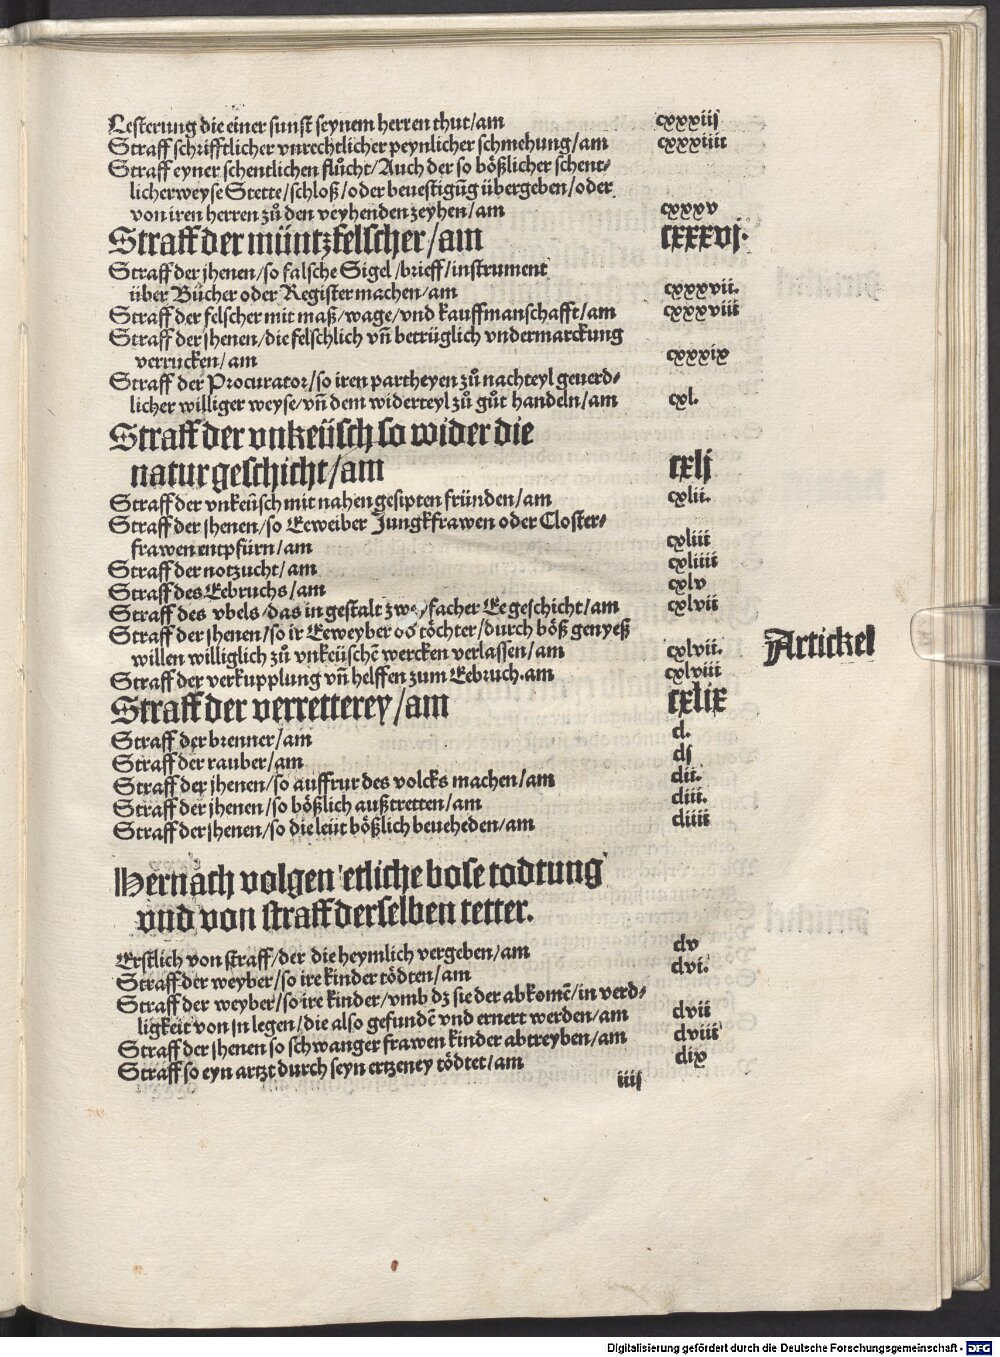 Lesterung die einer sunst seynem herren thut/am cxxxiij
Straff schrifftlicher vnrechtlicher peynlicher schmehung/am cxxxiiii
Straff eyner schentlichen flůcht/Auch der so bößlicher schent-
licher weyse Stette/schloß/oder beuestigũg übergeben/oder
von iren herren zů den veyhenden zeyhen/am cxxxv
Straff der müntzfelscher/am cxxxvj.
Straff der jhenen/so falsche Sigel/brieff/instrument
über Bücher oder Register machen/am cxxxvii.
Straff der felscher mit maß/wage/vnd kauffmanschafft/am cxxxviii
Straff der jhenen/die felschlich vñ betrüglich vndermarckung
verrucken/am cxxxix
Straff der Procurator/so iren partheyen zů nachteyl geuerd-
licher williger weyse/vñ dem widerteyl zů gůt handeln/am cxl.
Straff der vnkeüsch so wider die
natur geschicht/am cxlj
Straff der vnkeüsch mit nahen gesipten fründen/am cxlii.
Straff der jhenen/so Eeweiber Jungkfrawen oder Closter-
frawen entpfürn/am cxliii
Straff der notzucht/am cxliiii
Straff des Eebruchs/am cxlv
Straff des vbels/das in gestalt zwe, facher Ee geschicht/am cxlvii
Straff der jhenen/so ir Eeweyber oð töchter/durch böß genyeß
willen williglich zů vnkeüschẽ wercken verlassen/am cxlvii.
Straff der verkupplung vñ helffen zum Eebruch.am cxlviii
Straff der verretterey/am cxlix
Straff der brenner/am cl.
Straff der rauber/am clj
Straff der jhenen/so auffrur des volcks machen/am clii.
Straff der jhenen/so bößlich außtretten/am cliii.
Straff der jhenen/so die leüt bößlich beueheden/am cliiii
Artickel
Hernach volgen etliche bose todtung
vnd von straff derselben tetter.
Erstlich von straff/der die heymlich vergeben/am clv
Straff der weyber/so ire kinder tödten/am clvi.
Straff der weyber/so ire kinder/vmb dz sie der abkomẽ/in verd-
ligkeit von jn legen/die also gefundẽ vnd ernert werden/am clvii
Straff der jhenen so schwanger frawen kinder abtreyben/am clviii
Straff so eyn artzt durch seyn ertzeney tödtet/am clix
iiij
Digitalisierung gefördert durch die Deutsche Forschungsgemeinschaft - DFG